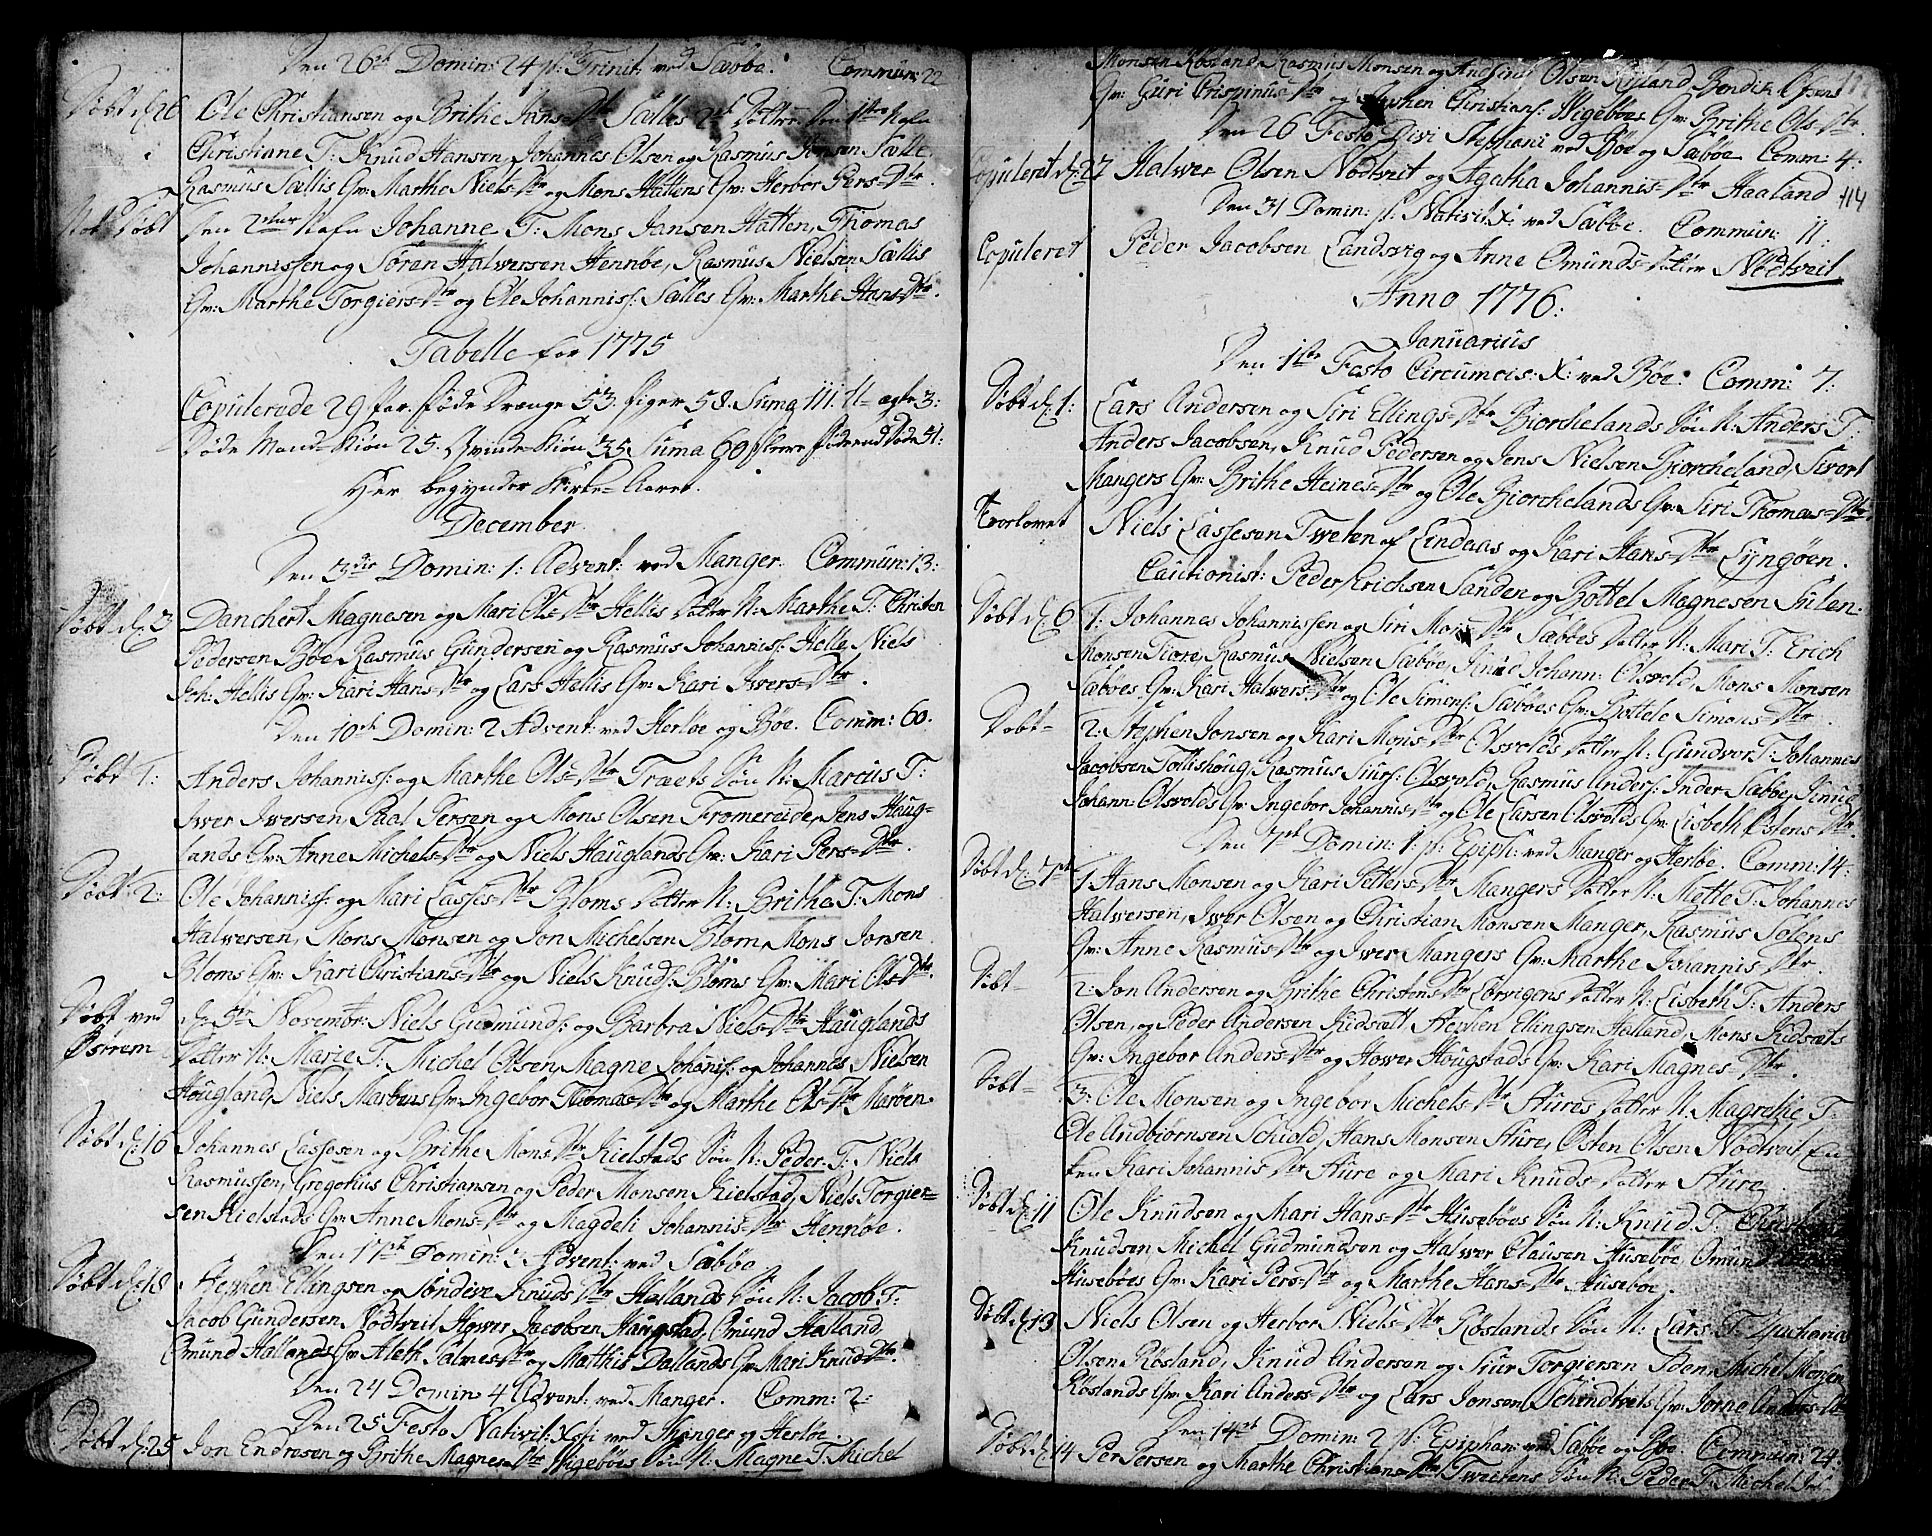 Den 26de Domin: 24 p: Trinit: ved Sæbøe. Commun: 22
Døbt d: 26 Ole Christiansen og Brithe Jans=Dtr Sælles 2de Døttre Den 1ste Nafn
Christiane T: Knud Hansen, Johannes Olsen og Rasmus Jonsen Sælle,
Rasmus Sællis Qv: Marthe Niels=Dtr og Mons Hattens Qv: Herbor Pers=Dtr.
Not: Døbt Den 2den Nafn Johanne T: Mons Jansen Hatten, Thomas
Johannissen og Søren Halwersen Hennøe, Rasmus Nielsen Sællis
Qv: Marthe Torgiers=Dtr og Ole Johanniss: Sælles Qv: Marthe Hans=Dtr.
Tabelle for 1775
Copulerede 29 par. føde Drenge 53. piger 58. Suma 111. U=ægte 3:
Døde Mand=Kiøn 25. Qvinde=Kiøn 35. Suma 60 fleere fødde end døde 51:
Her begynder Kirke=Aaret.
December.
Den 3die Domin: 1: Advent: ved Manger. Commun: 13:
Døbt d: 3 Danchert Magnesen og Mari Ols=Dtr Hellis Datter N: Marthe T: Christen
Pedersen Bøe, Rasmus Gundersen og Rasmus Johanniss: Helle, Niels
Joh: Hellis Qv: Kari Hans=Dtr og Lars Hellis Qv: Kari Iwers=Dtr.
Den 10de Domin: 2 Advent: ved Herløe og Bøe. Comm: 60.
Døbt 1: Anders Johanniss: og Marthe Ols=Dtr Træets Søn N: Marcus T:
Iwer Iwersen, Paal Persen og Mons Olsen Fromereide, Jens Houg-
lands Qv: Anne Michels=Dtr og Niels Hauglands Qv: Kari Pers=Dtr.
Døbt 2: Ole Johanniss: og Mari Lasses=Dtr Bloms Datter N: Brithe T: Mons
Halwersen, Mons Monsen og Jon Michelsen Blom, Mons Jonsen
Bloms Qv: Kari Christians=Dtr og Niels Knuds: Bloms Qv: Mari Ols=Dtr.
Døbt ved d: 5te Novembr: Niels Gudmunds: og Barbra Niels=Dtr Hauglands
Øsirem Datter N: Marie T: Michel Olsen, Magne Johanis: og Johannes Nielsen
Hougland, Niels Marøens Qv: Ingebor Thomas=Dtr og Marthe Ols=Dtr Marøen.
Døbt d: 16 Johannes Lassesen og Brithe Mons=Dtr Kielstads Søn N: Peder T: Niels
Rasmussen, Gregorius Christiansen og Peder Monsen Kielstad, Niels Torgier=
sen Kielstads Qv: Anne Mons=Dtr og Magdeli Johannis=Dtr Hennøe.
Den 17de Domin: 3 Advent: ved Sæbøe
Døbt d: 18 Stephen Ellingsen og Sønneve Knuds Dtr Hallands Søn N: Jacob T:
Jacob Gundersen Nødtveit, Hower Jacobsen Haugstad, Omund Halland,
Omund Hallands Qv: Aleth Salmes=Dtr og Matthis Dallands Qv: Mari Knuds=Dtr.
Den 24 Domin: 4 Advent: ved Manger. Comm: 2:
Den 25 Festo Nativit: Xsti ved Manger og Herløe.
Døbt d: 25 Jon Endresen og Brithe Magnes=Dtr Wigebøes Søn N: Magne T: Michel
Monsen Røsland, Rasmus Monsen og Anders Olsen Røsland, Bendix Olsens
Qv: Guri Crispinus=Dtr og Stephen Christians: Wigebøes Qv: Brithe Ols=Dtr.
Den 26 Festo Divi Stephani ved Bøe og Sæbøe Comm: 4:
Copuleret d: 27 Halwer Olsen Nødtveit og Agatha Johannis=Dtr Haaland
114
Den 31 Domin: p: Nativit. X: ved Sæbøe. Commun: 11:
Copuleret Peder Jacobsen Landsvig og Anne Omunds=Datter Nødtveit
Anno 1776:
Januarius
Den 1ste Festo Circumcis: X: ved Bøe. Comm: 7:
Døbt d: 1: Lars Andersen og Siri Ellings=Dtr Biorchelands Søn N: Anders T:
Anders Jacobsen, Knud Pedersen og Jens Nielsen Biorcheland, Siwort
Mangers Qv: Brithe Heines=Dtr og Ole Biorchelands Qv: Siri Thomas=Dtr.
Troelovet Niels Lassesen Tweten af Lindaas og Kari Hans=Dtr Lyngøen.
Cautionist: Peder Erichsen Sanden og Bottel Magnesen Sulen.
Døbt d: 6 1: Johannes Johannissen og Siri Mons=Dtr Sæbøes Datter N: Mari T: Erich
Monsen Tiore, Rasmus Nielsen Sæbøe, Knud Johann: Olsvold, Mons Monsen
Sæbøes Qv: Kari Halwers=Dtr og Ole Simens: Sæbøes Qv: Bottele Simons=Dtr.
Døbt= 2: Stephen Jonsen og Kari Mons=Dtr Olsvolds Datter N: Gundvor T: Johannes
Jacobsen Tollishoug, Rasmus Siurs: Olsvold, Rasmus Anders: Inder Sæbøe, Knud
Johann: Olsvolds Qv: Ingebor Johannis=Dtr og Ole Larsen Olsvolds Qv: Lisbeth Ostens=Dtr.
Den 7de Domin: 1 p: Epiph: ved Manger og Herløe. Comm: 14:
Døbt d: 7de 1 Hans Monsen og Kari Petters=Dtr Mangers Datter N: Mette T: Johannes
Halwersen, Iwer Olsen og Christian Monsen Manger, Rasmus Solens
Qv: Anne Rasmus=Dtr og Iwer Mangers Qv: Marthe Johannis Dtr.
Døbt= 2: Jon Andersen og Brithe Christens=Dtr Lorvigens Datter N: Lisbeth T: Anders
Olsen, og Peder Andersen Kidsæt, Stephen Ellingsen Halland, Mons Kidsæts
Qv: Ingebor Anders=Dtr og Hower Hougstads Qv: Kari Magnes=Dtr.
Døbt= 3: Ole Monsen og Ingebor Michels=Dtr Stures Datter N: Magrethe T:
Ole Andbiornsen Schiold, Hans Monsen Sture, Østen Olsen Nødtveit, En-
ken Kari Johannis Dtr Sture og Mari Knuds Datter Sture
Døbt d: 11 Ole Knudsen og Mari Hans=Dtr Husebøes Søn N: Knud T:
Knudsen, Michel Gudmundsen og Halwer Clausen Husebøe, Omund
Husebøes Qv: Kari Pers=Dtr og Marthe Hans=Dtr Husebøe.
Døbt d: 13 Niels Olsen og Herbor Niels=Dtr Røslands Søn N: Lars T: Zacharias
Olsen Røsland, Knud Andersen og Siur Torgiersen Iden, Michel Monsen
Røslands Qv: Kari Anders=Dtr og Lars Jonsen Schindtveits Qv: Jorne Anders=Dtr
Den 14de Domin: 2 p: Epiphan: ved Sæbøe og Bøe. Commun: 24:
Døbt d: 14 Per Persen og Marthe Christians=Dtr Tweitens Søn N: Peder T: Michel